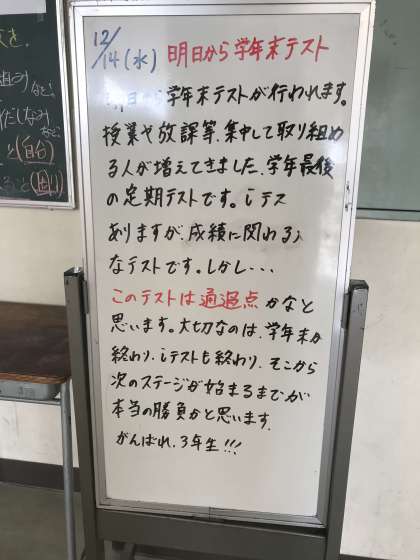 12/14(水) 明日から学年末テスト
明日から学年末テストが行われます。
授業や放課等、集中して取り組め
る人が増えてきました。学年最後
の定期テストです。iテス
ありますが、成績に関わる
なテストです。しかし・・・
このテストは通過点かなと
思います。大切なのは、学年末が
終わり、iテストも終わり、そこから
次のステージが始まるまでが
本当の勝負かと思います。
がんばれ、3年生!!!
(自合)